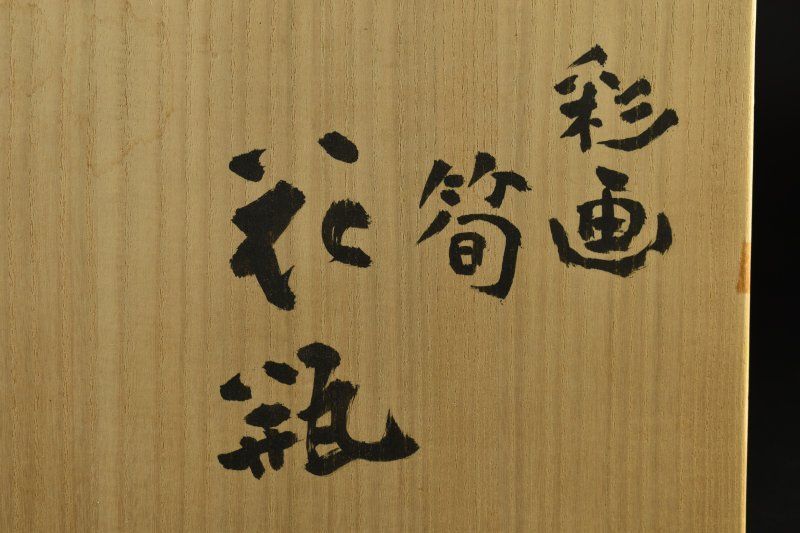 彩画
筍
花瓶